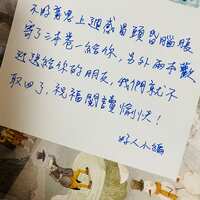 不好意思上週感冒頭昏腦脹
寄了三本卷一給你，另外兩本歡
迎送給你的朋友，我們就不
取回了，祝福閱讀愉快！
好人小編